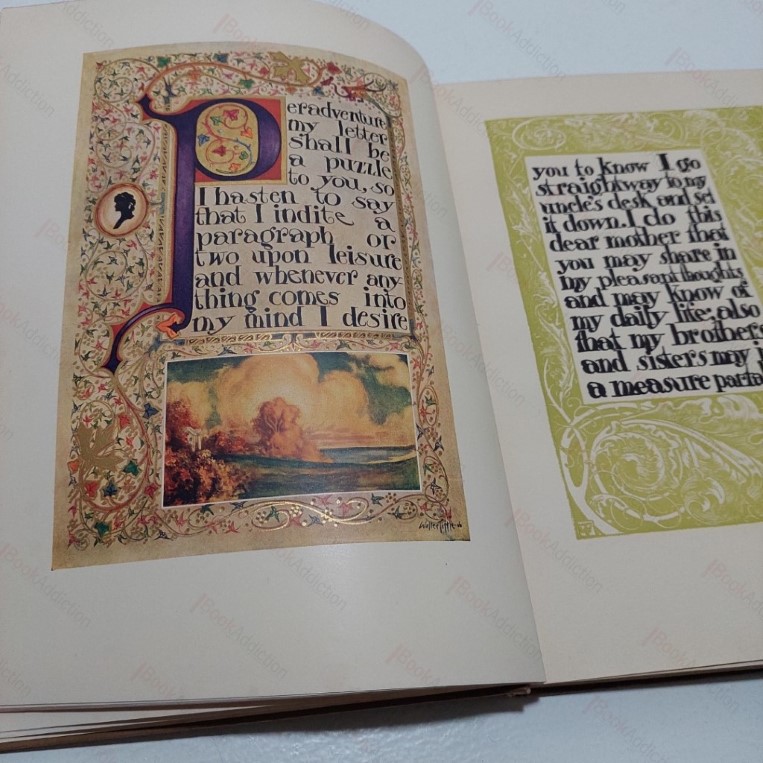 Peradventure
my letter
shall be
a puzzle
to you, so
I hasten to say
that I indite a
paragraph or
two upon leisure
and whenever any-
thing comes into
my mind I desire
you to know I go
straightway to my
uncle's desk and set
it down. I do this
dear mother that
you may share in
my pleasant thoughts
and may know of
my daily life: also
that my brothers
and sisters may
a measure
BookAddiction